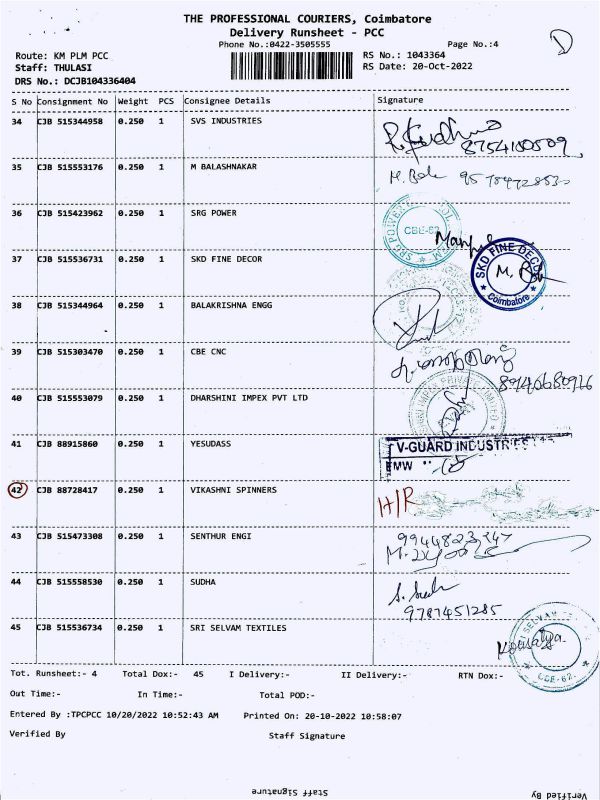 THE PROFESSIONAL COURIERS, Coimbatore
Delivery Runsheet - PCC
Phone No.:0422-3505555 Page No.:4
Route: KM PLM PCC RS No.: 1043364
Staff: THULASI RS Date: 20-Oct-2022
DRS No.: DCJB104336404
S No Consignment No Weight PCS Consignee Details Signature
34 CJB 515344958 0.250 1 SVS INDUSTRIES
8754100509
35 CJB 515553176 0.250 1 M BALASHNAKAR M. Bala
36 CJB 515423962 0.250 1 SRG POWER
SRG POWER CBE-62
37 CJB 515536731 0.250 1 SKD FINE DECOR
SKD FINE DECOR Coimbatore
38 CJB 515344964 0.250 1 BALAKRISHNA ENGG
39 CJB 515303470 0.250 1 CBE CNC
8940680926
40 CJB 515553079 0.250 1 DHARSHINI IMPEX PVT LTD
41 CJB 88915860 0.250 1 YESUDASS
V-GUARD INDUSTRIES
EMW
42 CJB 88728417 0.250 1 VIKASHNI SPINNERS H/R
43 CJB 515473308 0.250 1 SENTHUR ENGI
9944823247
44 CJB 515558530 0.250 1 SUDHA
9787451285
45 CJB 515536734 0.250 1 SRI SELVAM TEXTILES Kousalya.
CBE-62.
Tot. Runsheet:- 4 Total Dox:- 45 I Delivery:- II Delivery:- RTN Dox:-
Out Time:- In Time:- Total POD:-
Entered By :TPCPCC 10/20/2022 10:52:43 AM Printed On: 20-10-2022 10:58:07
Verified By Staff Signature
Staff Signature Verified By